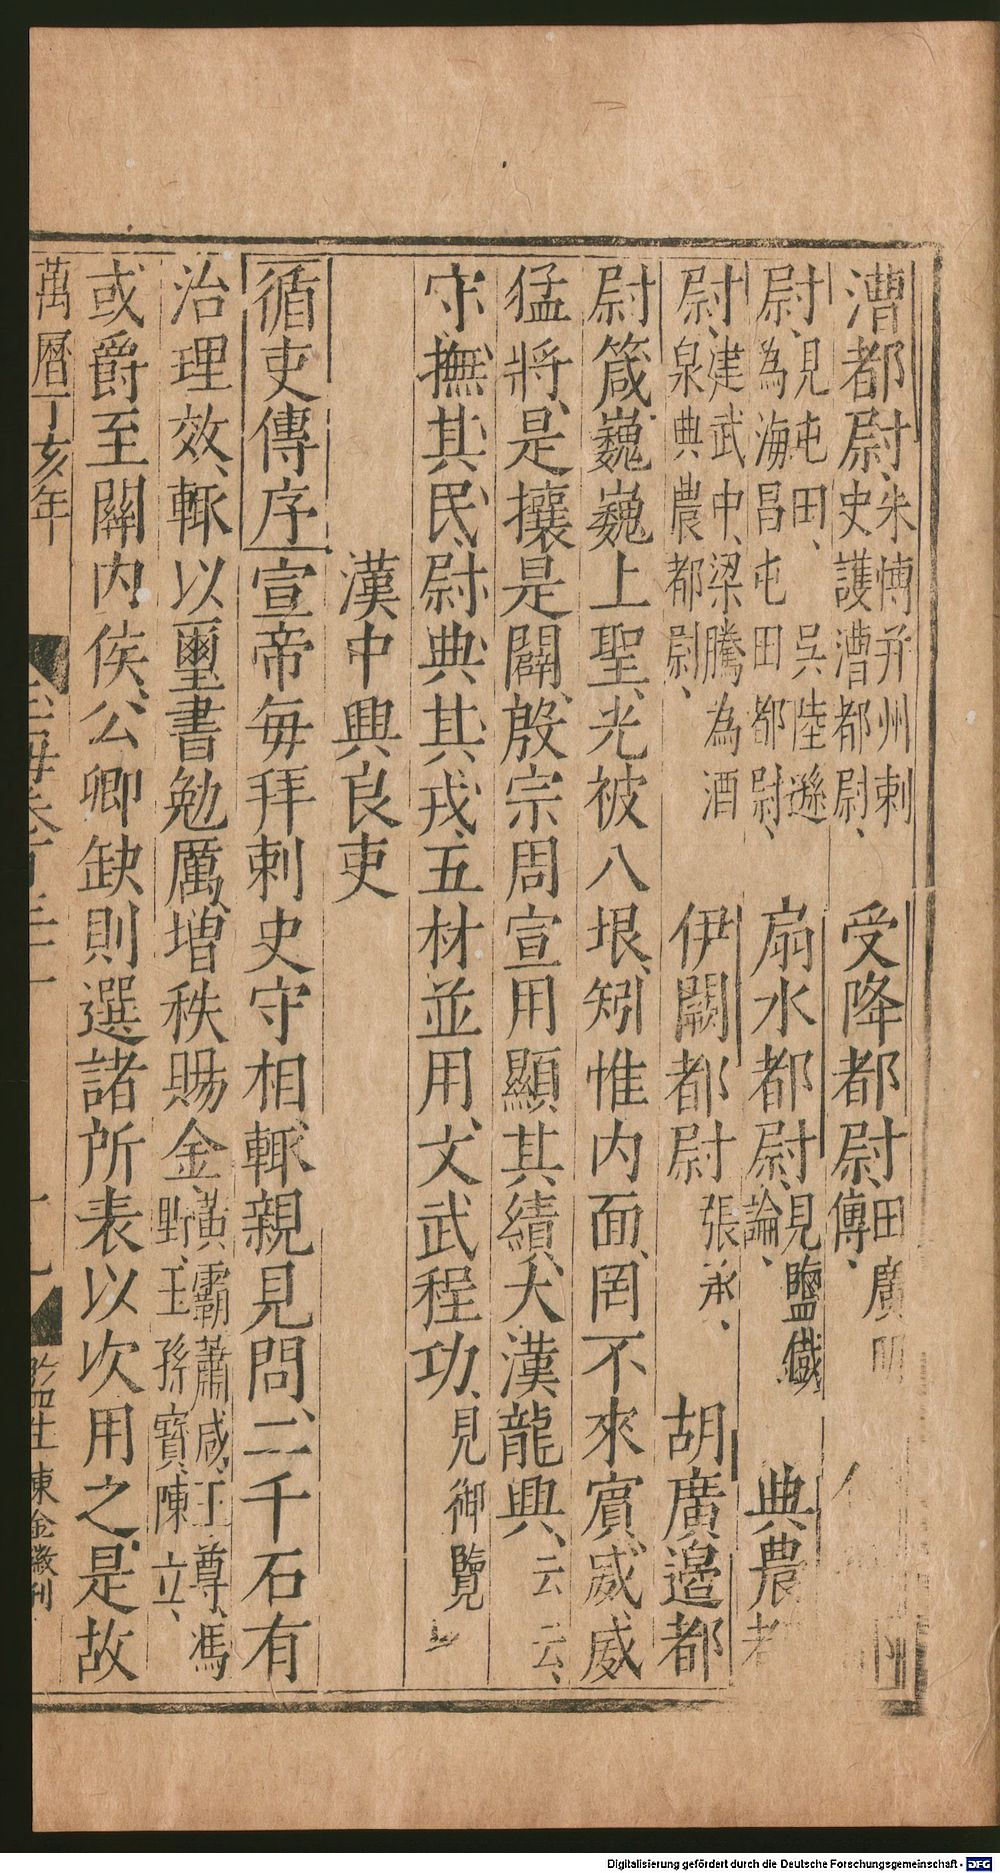 漕都尉、朱博并州刺史護漕都尉、 受降都尉、田廣明傳、
尉、見屯田、吳陸遜為海昌屯田都尉、 扇水都尉、見鹽鐵論、 典農
尉、建武中、梁騰為酒泉典農都尉、 伊闕都尉張承、 胡廣邊都
尉箴、巍巍上聖、光被八垠、矧惟內面、罔不來賓、威威
猛將、是攘是闢、殷宗周宣用顯其績、大漢龍興、云云、
守、撫其民、尉典其戎、五材並用、文武程功、見御覽
漢中興良吏
循吏傳序宣帝每拜刺史守相、輒親見問、二千石有
治理效、輒以璽書勉厲、增秩賜金、黃霸蕭咸、王尊、馮野王、孫寶、陳立、
或爵至關內侯、公卿缺則選諸所表以次用之、是故
萬曆丁亥年 玉海卷 監生陳金徽刊
Digitalisierung gefördert durch die Deutsche Forschungsgemeinschaft - DFG